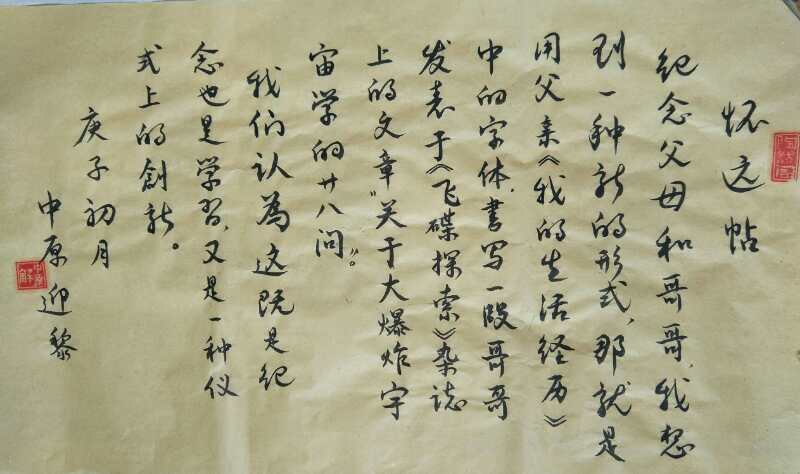 怀远帖
纪念父母和哥哥,我想
到一种新的形式,那就是
用父亲《我的生活经历》
中的字体,書写一段哥哥
发表于《飞碟探索》杂志
上的文章“关于大爆炸宇
宙学的廿八问”。
我们认為这既是纪
念也是学習,又是一种仪
式上的創新。
庚子初月
中原迎黎